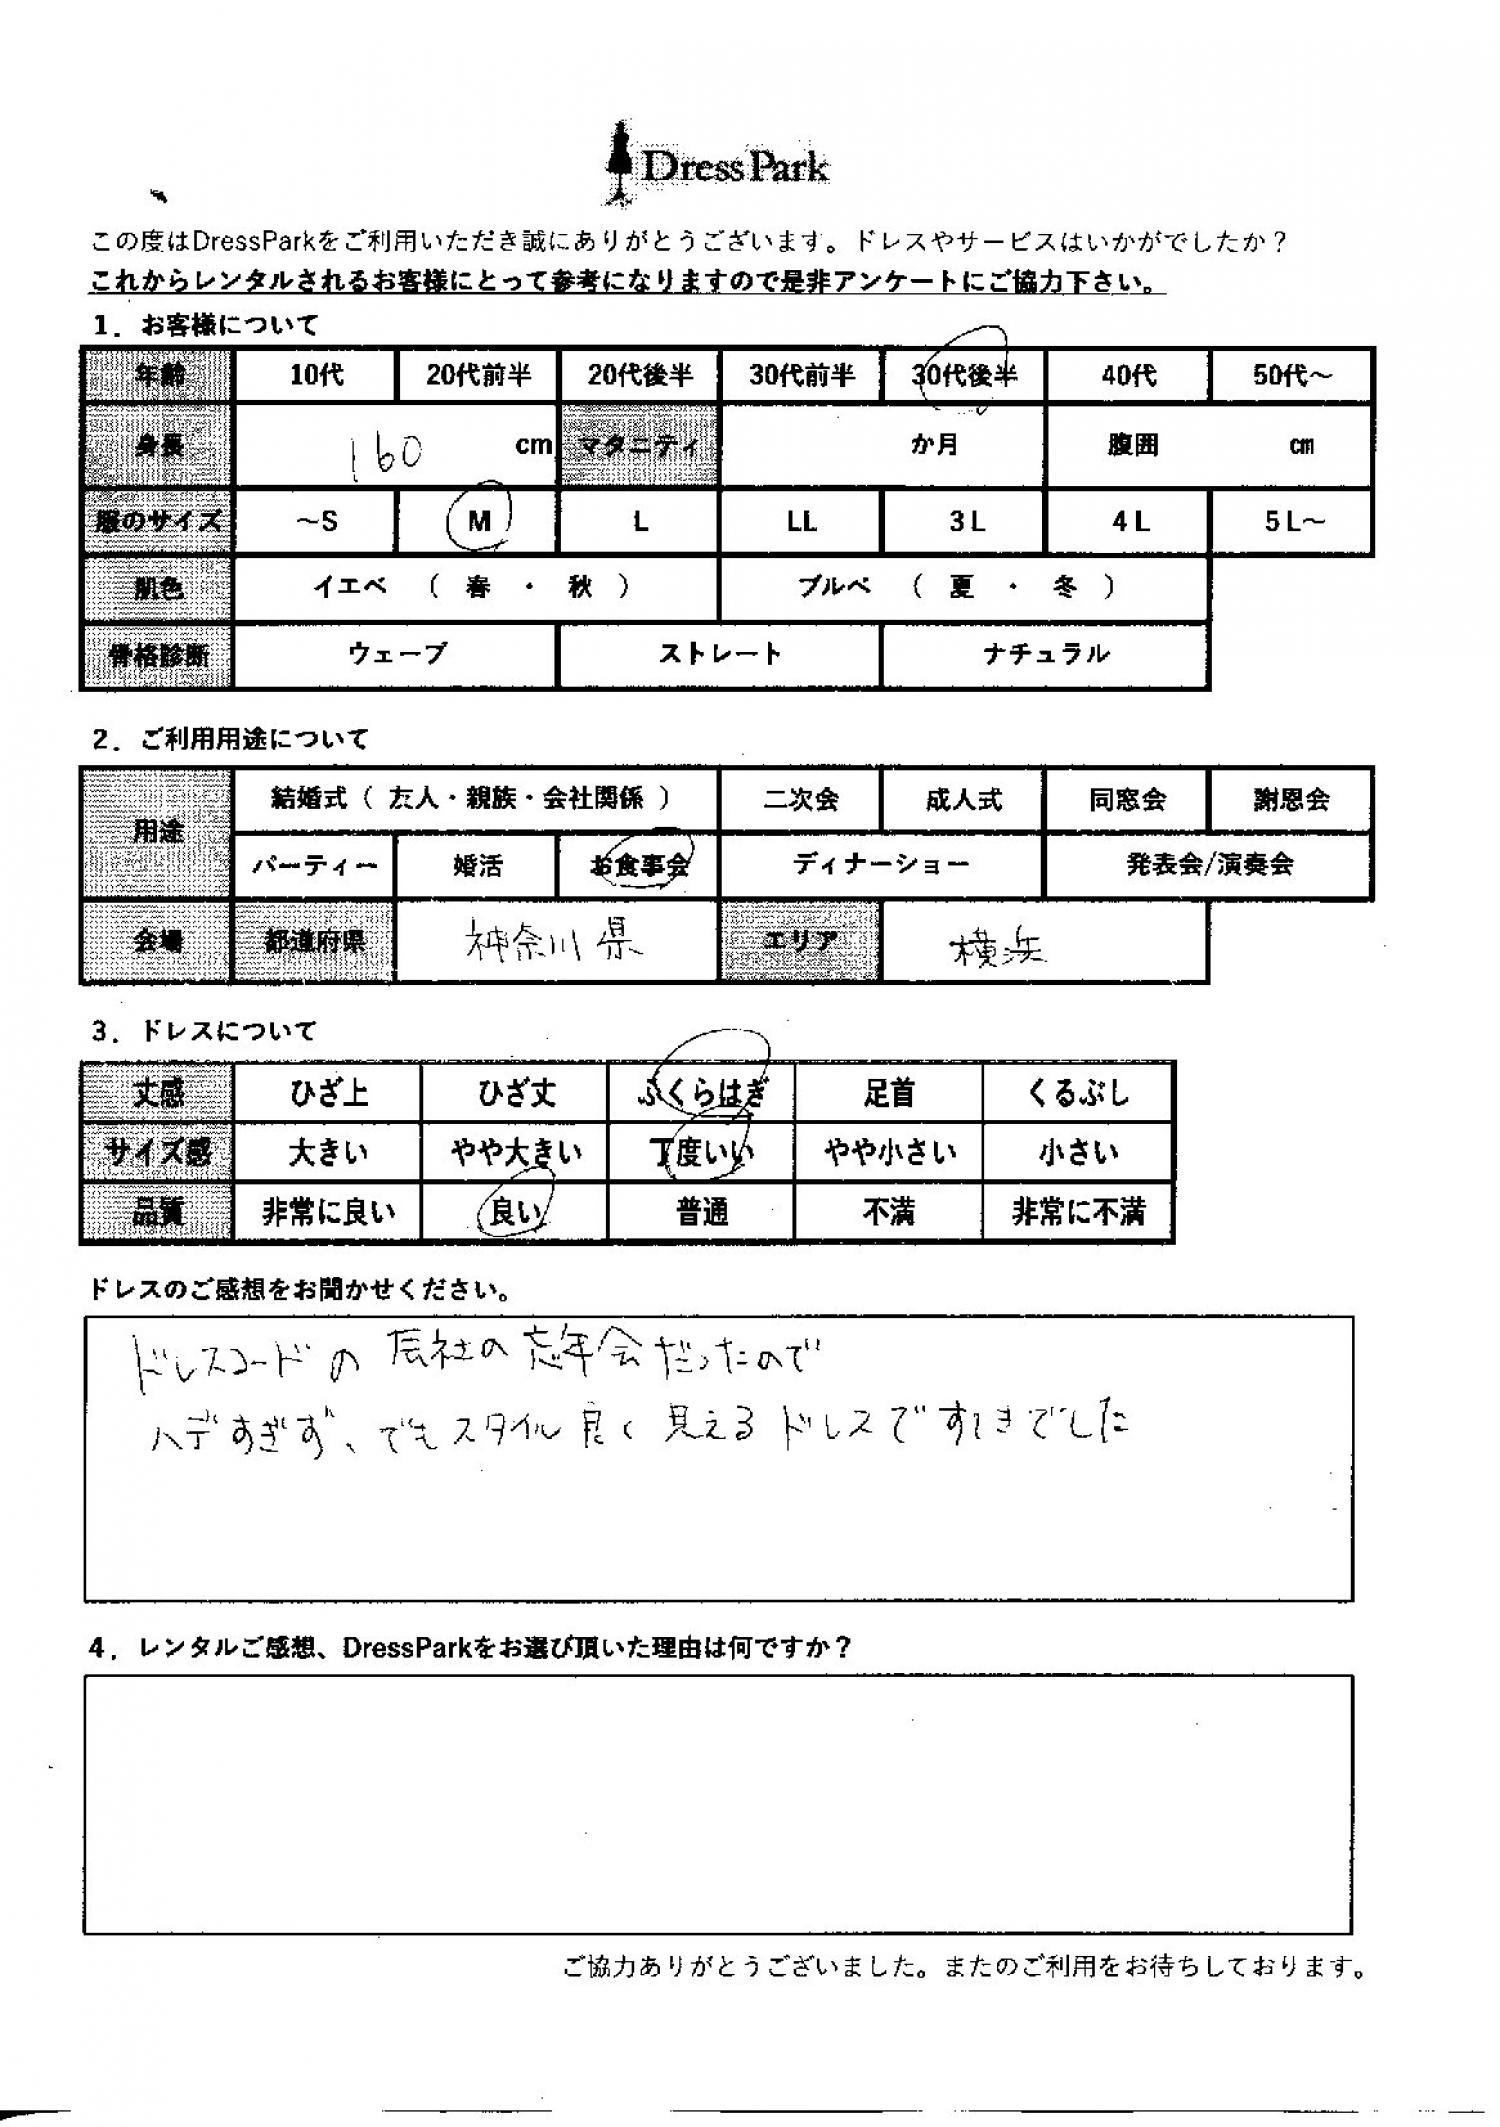 DressPark
この度はDressParkをご利用いただき誠にありがとうございます。ドレスやサービスはいかがでしたか？
これからレンタルされるお客様にとって参考になりますので是非アンケートにご協力下さい。
1．お客様について
年齢 10代 20代前半 20代後半 30代前半 30代後半 40代 50代～
身長 160 cm マタニティ か月 腹囲 cm
服のサイズ ～S M L LL 3L 4L 5L～
肌色 イエベ （ 春 ・ 秋 ） ブルベ （ 夏 ・ 冬 ）
骨格診断 ウェーブ ストレート ナチュラル
2．ご利用用途について
用途 結婚式（ 友人・親族・会社関係 ） 二次会 成人式 同窓会 謝恩会
パーティー 婚活 お食事会 ディナーショー 発表会/演奏会
会場 都道府県 神奈川県 エリア 横浜
3．ドレスについて
丈感 ひざ上 ひざ丈 ふくらはぎ 足首 くるぶし
サイズ感 大きい やや大きい 丁度いい やや小さい 小さい
品質 非常に良い 良い 普通 不満 非常に不満
ドレスのご感想をお聞かせください。
ドレスコードの 社の忘年会だったので
ハデすぎず、でもスタイル良く見えるドレスですてきでした
4．レンタルご感想、DressParkをお選び頂いた理由は何ですか？
ご協力ありがとうございました。またのご利用をお待ちしております。